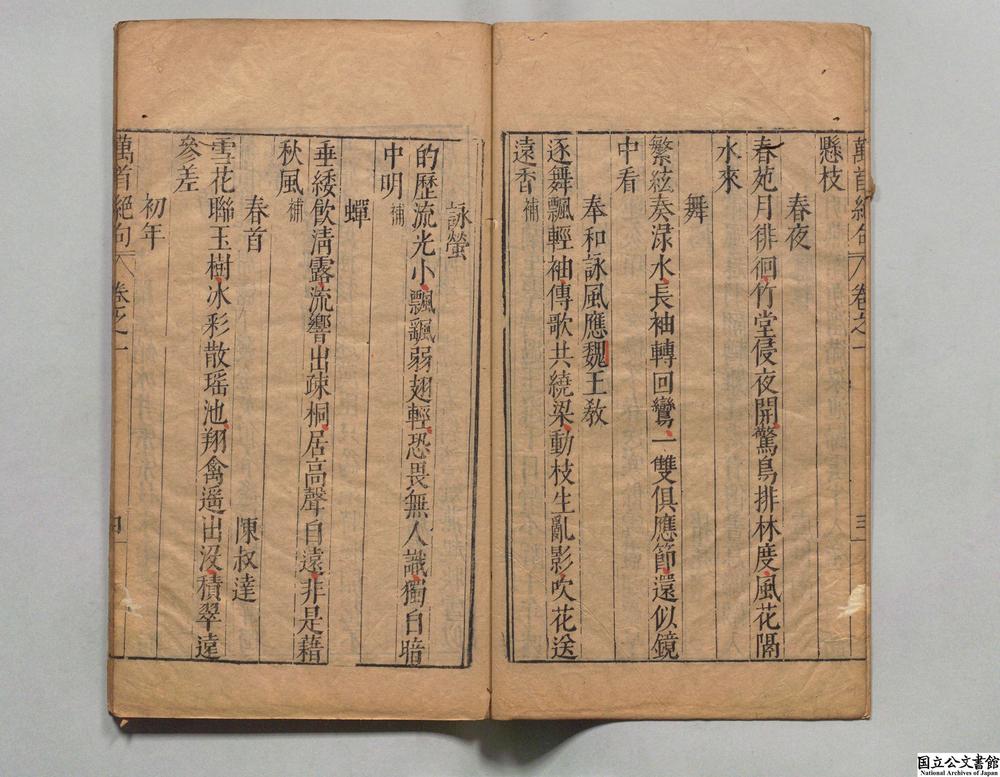 萬首絕句 卷之一 三
懸枝
春夜
春苑月徘徊竹堂侵夜開驚鳥排林度風花隔
水來
舞
繁絃奏淥水長袖轉回鸞一雙俱應節還似鏡
中看
奉和詠風應魏王敎
逐舞飄輕袖傳歌共繞梁動枝生亂影吹花送
遠香補
詠螢
的歷流光小飄颻弱翅輕恐畏無人識獨自暗
中明補
蟬
垂緌飲淸露流響出疎桐居高聲自遠非是藉
秋風補
春首 陳叔達
雪花聯玉樹冰彩散瑶池翔禽遥出沒積翠遠
參差
初年
萬首絕句 卷之一 四
国立公文書館
National Archives of Japan